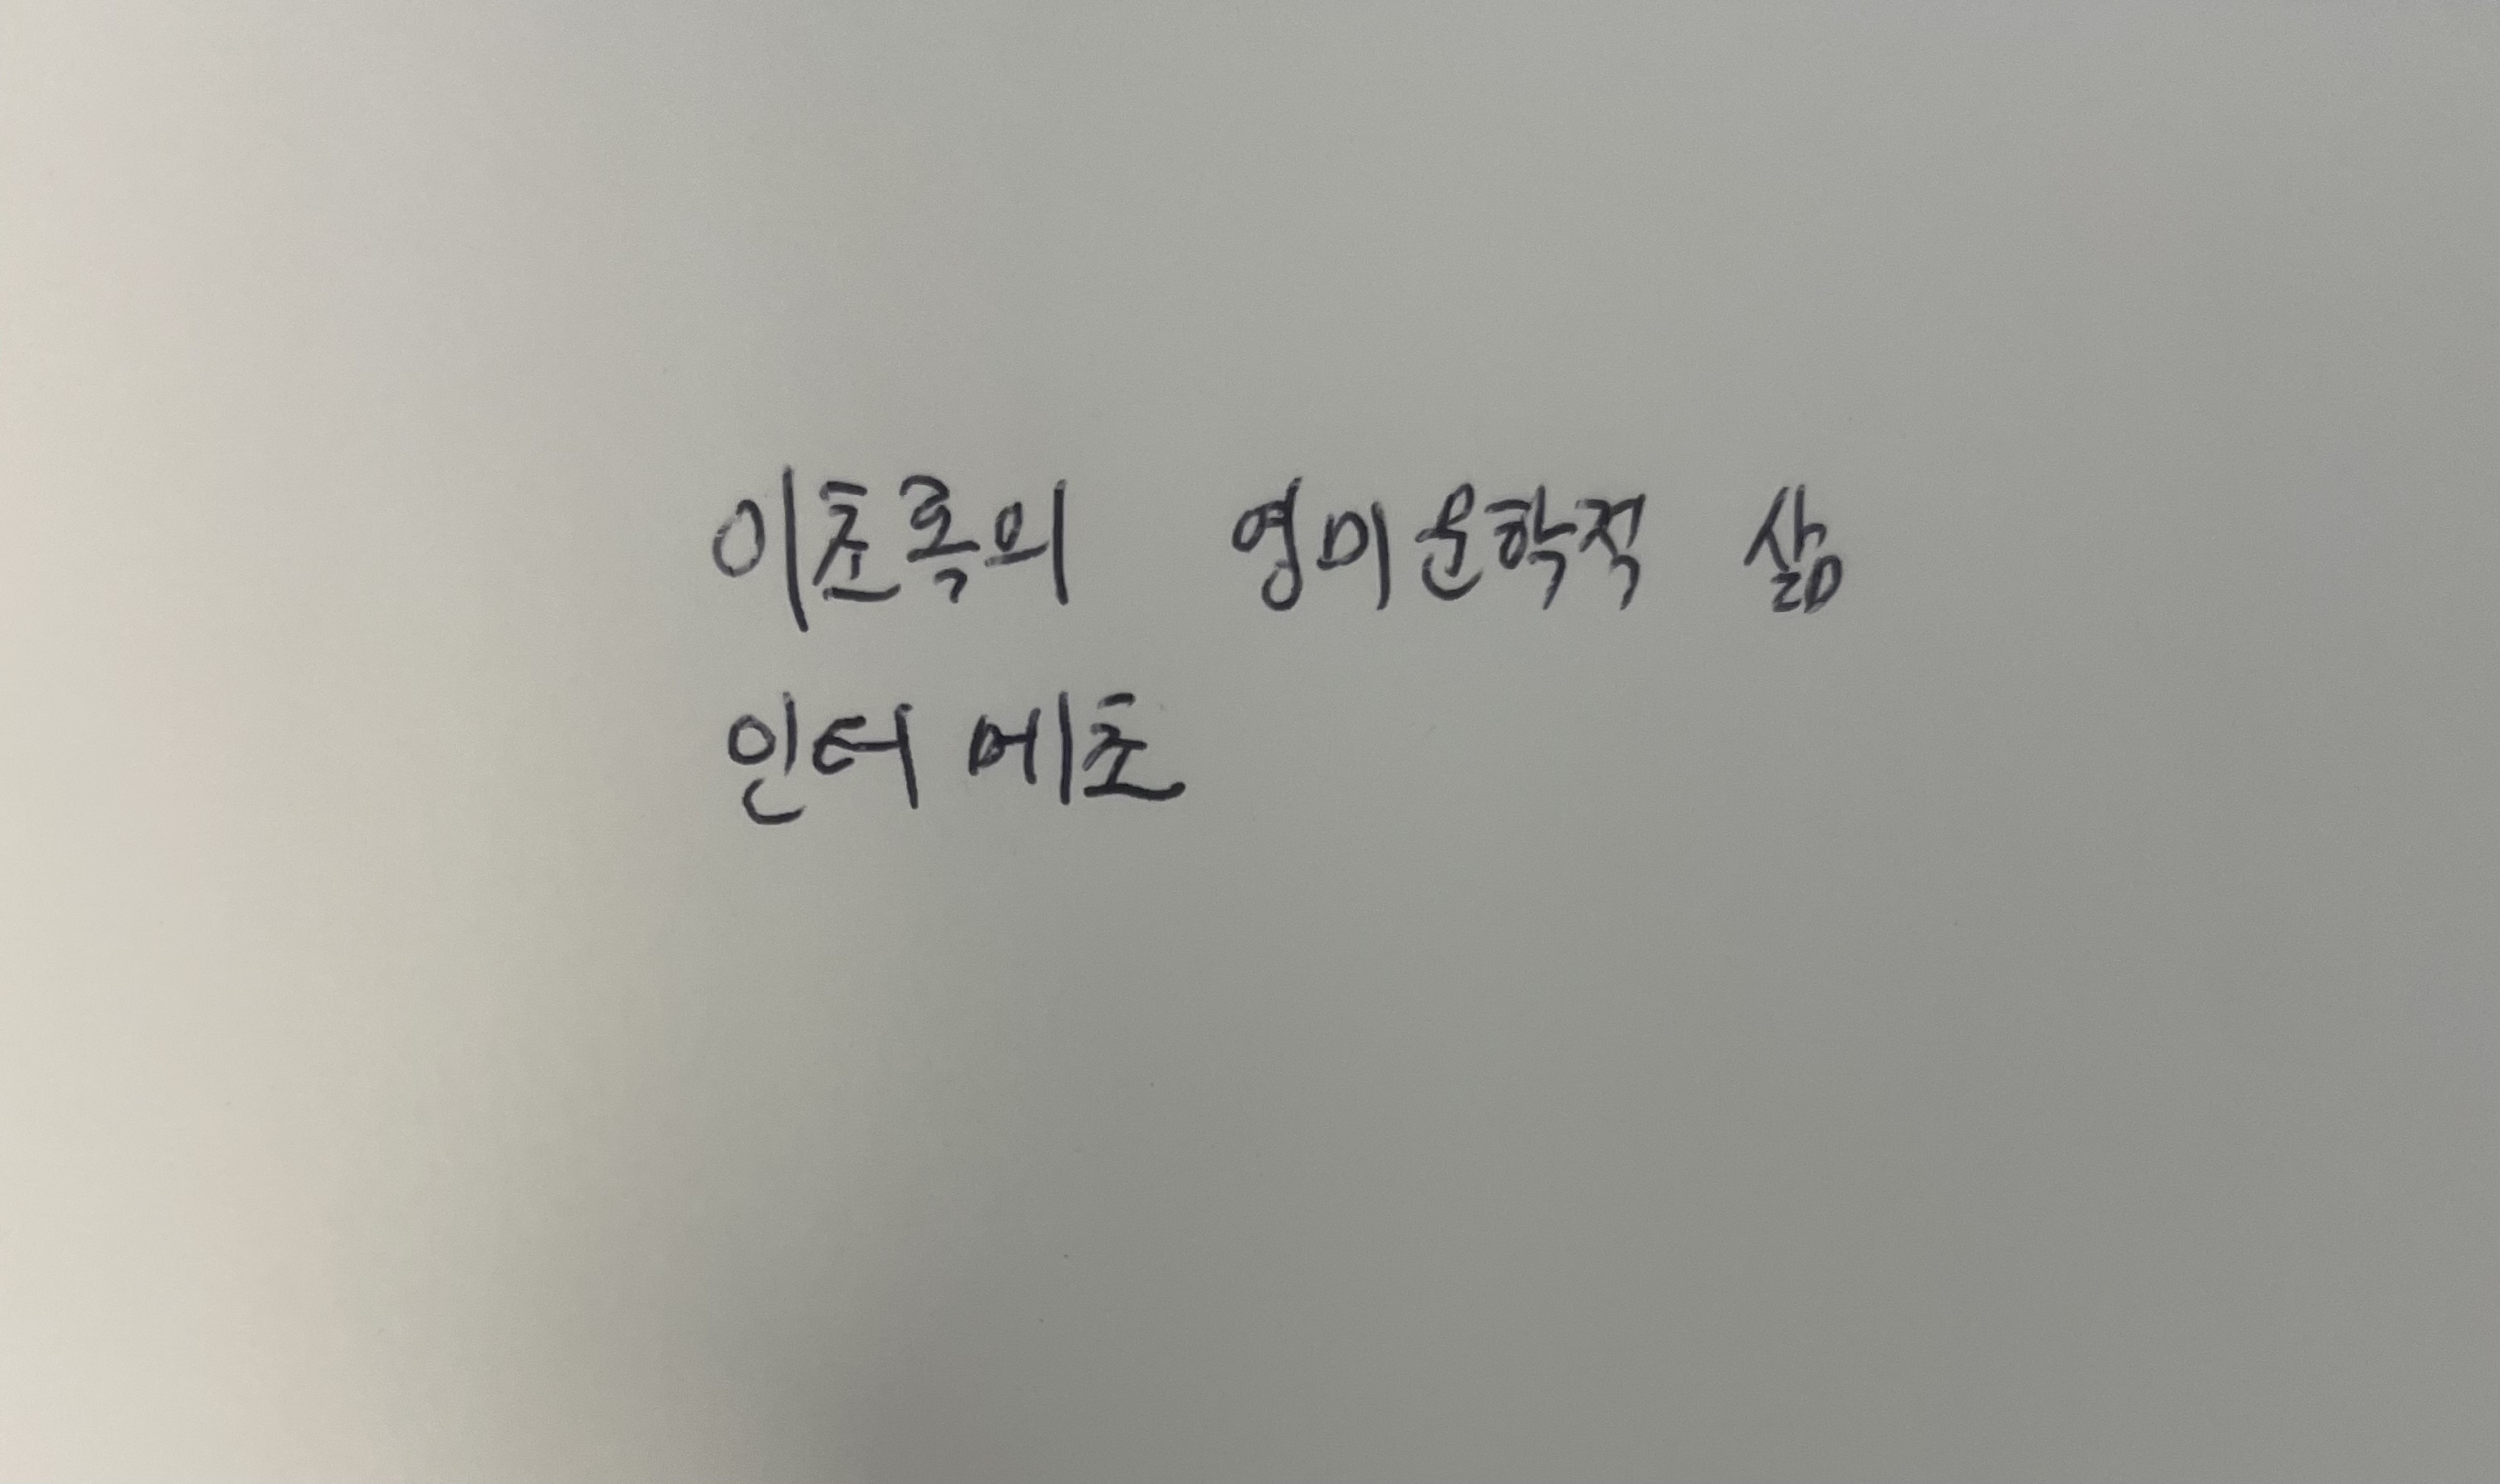 이초록의 영미문학적 삶
인터메초